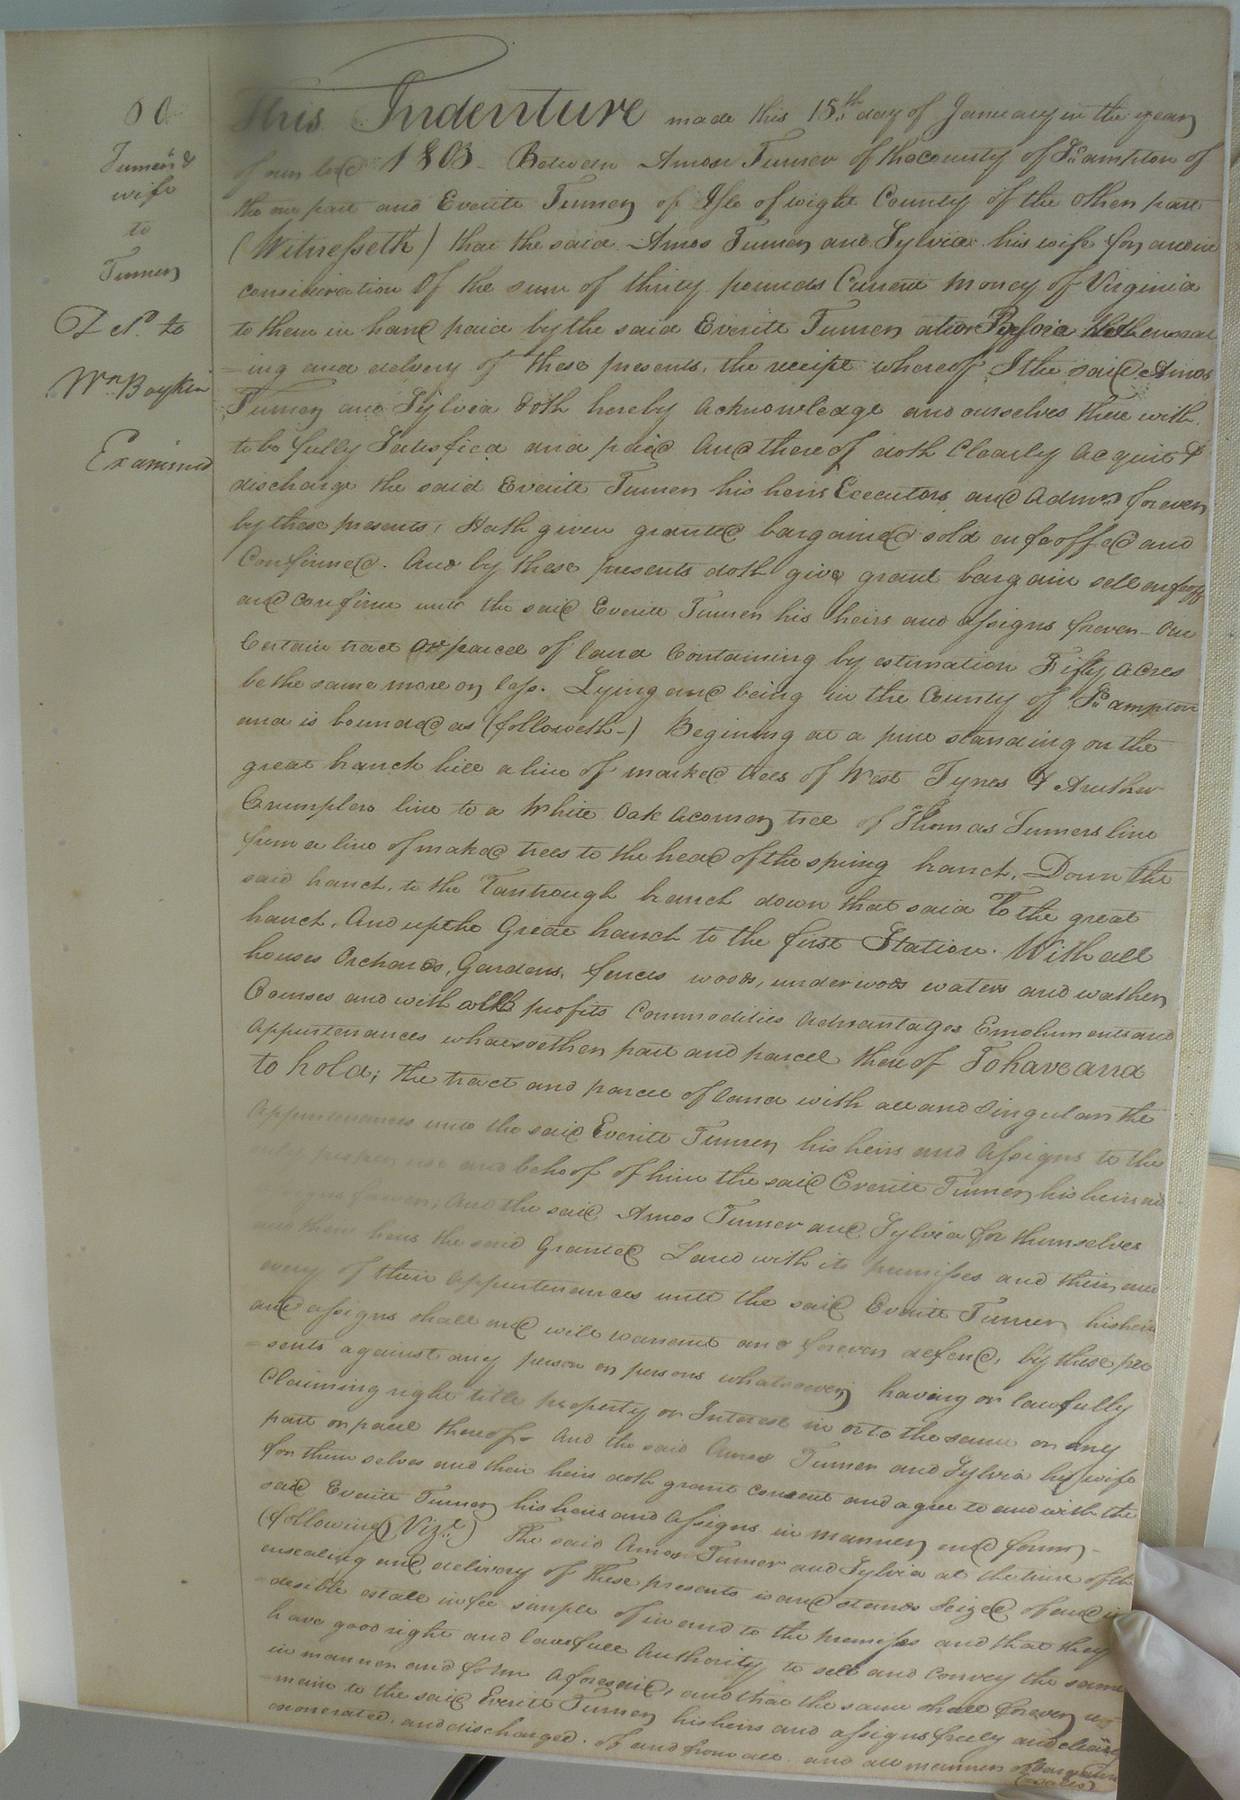 60
Turner &
wife
to
Turner
Del.d to
Wm Boykin
Examined
This Indenture made this 15th day of January in the year
of our lord 1803 - Between Amos Turner of the county of So ampton of
the one part and Everite Turner of Isle of wight County of the other part
(Witnesseth) that the said Amos Turner and Sylvia his wife for and in
consideration Of the sum of thirty pounds Current money of Virginia
to them in hand paid by the said Everite Turner at or Before the enseal
-ing and delvery of these presents, the receipt whereof I the said Amos
Turner and Sylvia doth hereby acknowledge and ourselves there with
to be fully Satesfied and paid And there of doth Clearly acquit &
discharge the said Everite Turner his heirs Executors and Admrs forever
by these presents, Hath given granted bargained sold enfeoffed and
Confirmed. And by these presents doth give grant bargain sell enfeoff
and confirm unto the said Everite Turner his heirs and assigns forever - One
Certain tract or parcel of land Containing by estimation Fifty acres
be the same more or less. Lying and being in the County of So ampton
and is bounded as (followeth -) Begining at a pine standing on the
great branch hill a line of marked trees of West Tynes & Aruthur
Crumplers line to a White Oak a corner tree of Thomas Turners line
from a line of maked trees to the head of the spring branch, Down the
said branch, to the Tantrough branch down that said To the great
branch, And up the Great branch to the first Station. With all
houses Orchards, Gardens, fences woods, underwoods waters and wather
Courses and with all profits Commodities Advantages Emoluments and
Appurtenances whatsoether part and parcel there of To have and
to hold; the tract and parcel of land with all and Singular the
Appurtenances unto the said Everite Turner his heirs and Assigns to the
only proper use and behoof of him the said Everite Turner his heirs and
assigns forever; And the said Amos Turner and Sylvia for themselves
and their heirs the said Granted Land with its premisses and their and
every of their appurtenances unto the said Everite Turner his heirs
and assigns shall and will warrant and forever defend, by these pre
-sents against any person or persons whatsoever having or lawfully
Claiming right title property or Interest in or to the same or any
part or parcel thereof - And the said Amos Turner and Sylvia his wife
for them selves and their heirs doth grant consent and agree to and with the
said Everite Turner his heirs and Assigns in manner and form -
(following Vizt) The said Amos Turner and Sylvia at the time of the
ensealing and delivery of these presents is and stands Seized of and in
desible estate in fee simple of in and to the premises and that they
have good right and lawfull Authority to sell and Convey the same
in manner and form aforesaid, and that the same shall forever re
-main to the said Everite Turner his heirs and assigns freely and clearly
exonerated. and discharged. of and from all and all manner of bargains
(sales)